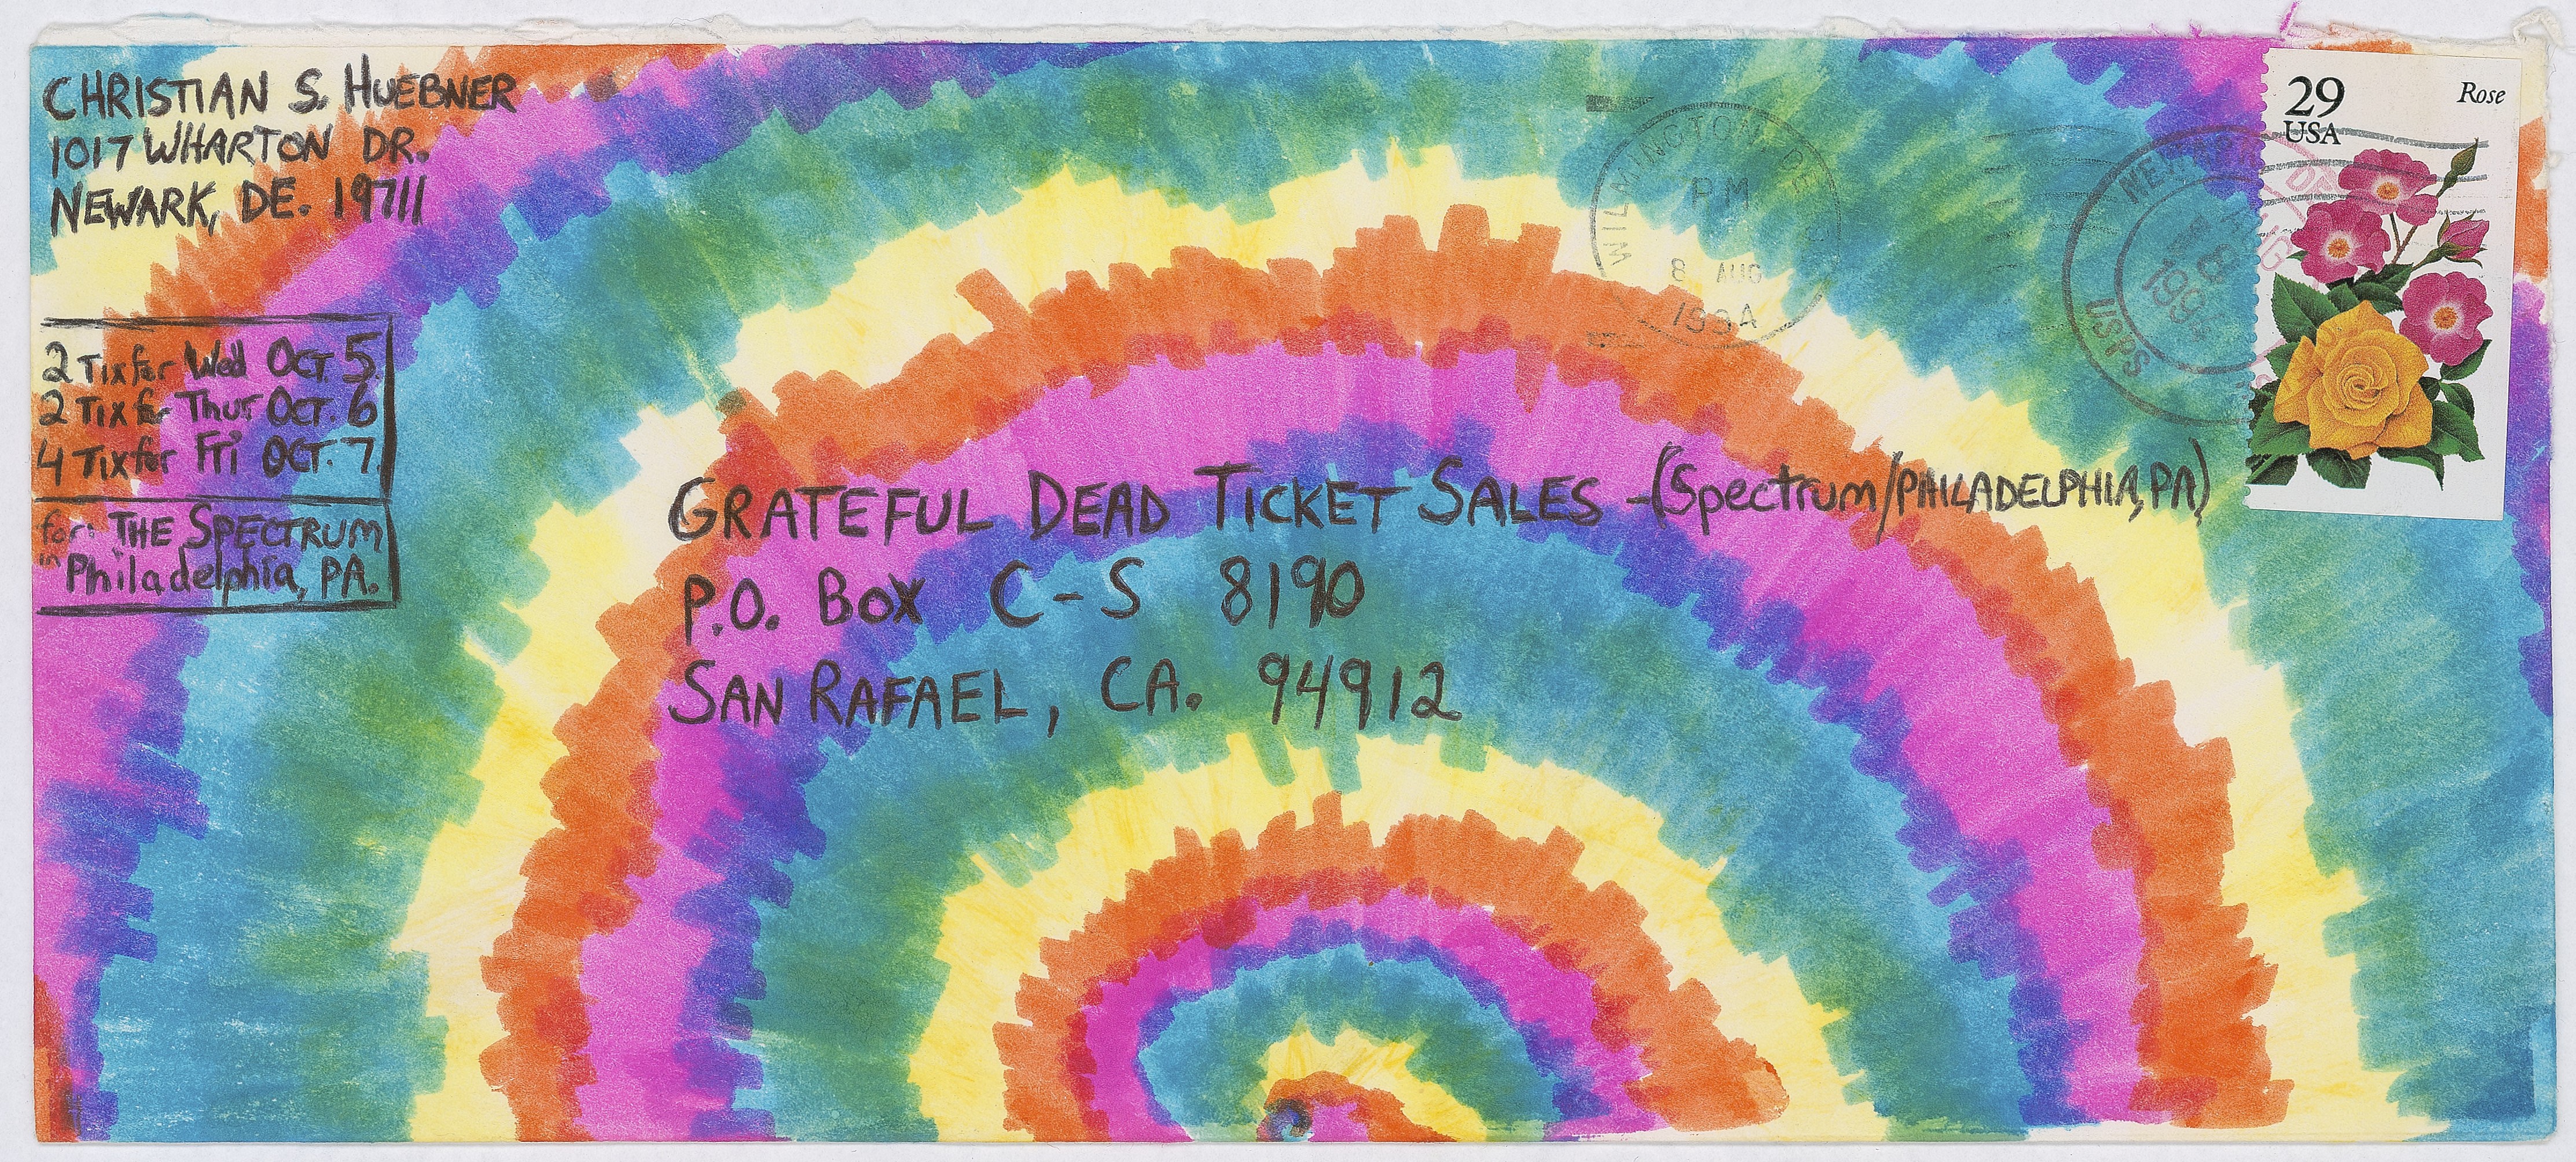 CHRISTIAN S. HUEBNER
1017 WHARTON DR.
NEWARK, DE. 19711
2 Tix for Wed Oct. 5.
2 Tix for Thur Oct. 6
4 Tix for Fri Oct. 7.
for: THE SPECTRUM
in Philadelphia, PA.
GRATEFUL DEAD TICKET SALES -(Spectrum/PHILADELPHIA, PA)
P.O. Box C-S 8190
SAN RAFAEL, CA. 94912
WILMINGTON, DE
PM
8 AUG
1994
USPS
29
USA
Rose